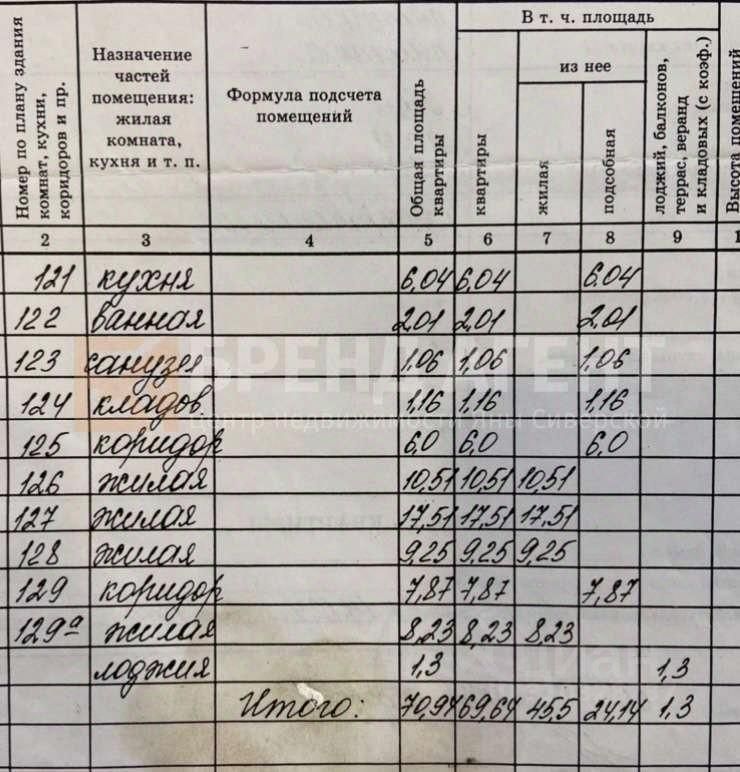 В т. ч. площадь
из нее
Номер по плану здания
комнат, кухни,
коридоров и пр.
Назначение
частей
помещения:
жилая
комната,
кухня и т. п.
Формула подсчета
помещений
Общая площадь
квартиры
квартиры
жилая
подсобная
лоджий, балконов,
террас, веранд
и кладовых (с коэф.)
Высота помещений
2 3 4 5 6 7 8 9 1
121 кухня 6,04 6,04 6.04
122 ванная 2,01 2,01 2,01
123 санузел 1,06 1,06 1,06
БРЕНД АГЕНТ
124 кладов. 1,16 1,16 1,16
Центр недвижимости Яны Сиверской
125 коридор 6,0 6,0 6,0
126 жилая 10,51 10,51 10,51
127 жилая 17,51 17,51 17,51
128 жилая 9,25 9,25 9,25
129 коридор 7,87 7,87 7,87
129а жилая 8,23 8,23 8,23
лоджия 1,3 1,3
циан
Итого: 70,94 69,64 45,5 24,14 1,3